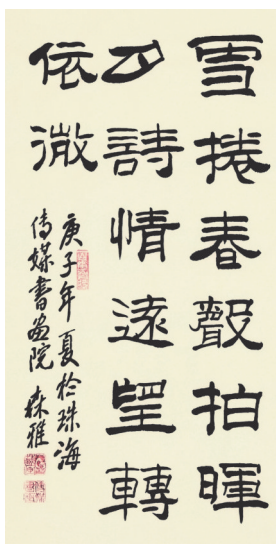 雪捲春聲拍暉
詩情遠望轉
依微
庚子年夏於珠海
傳媒書畫院 森雅